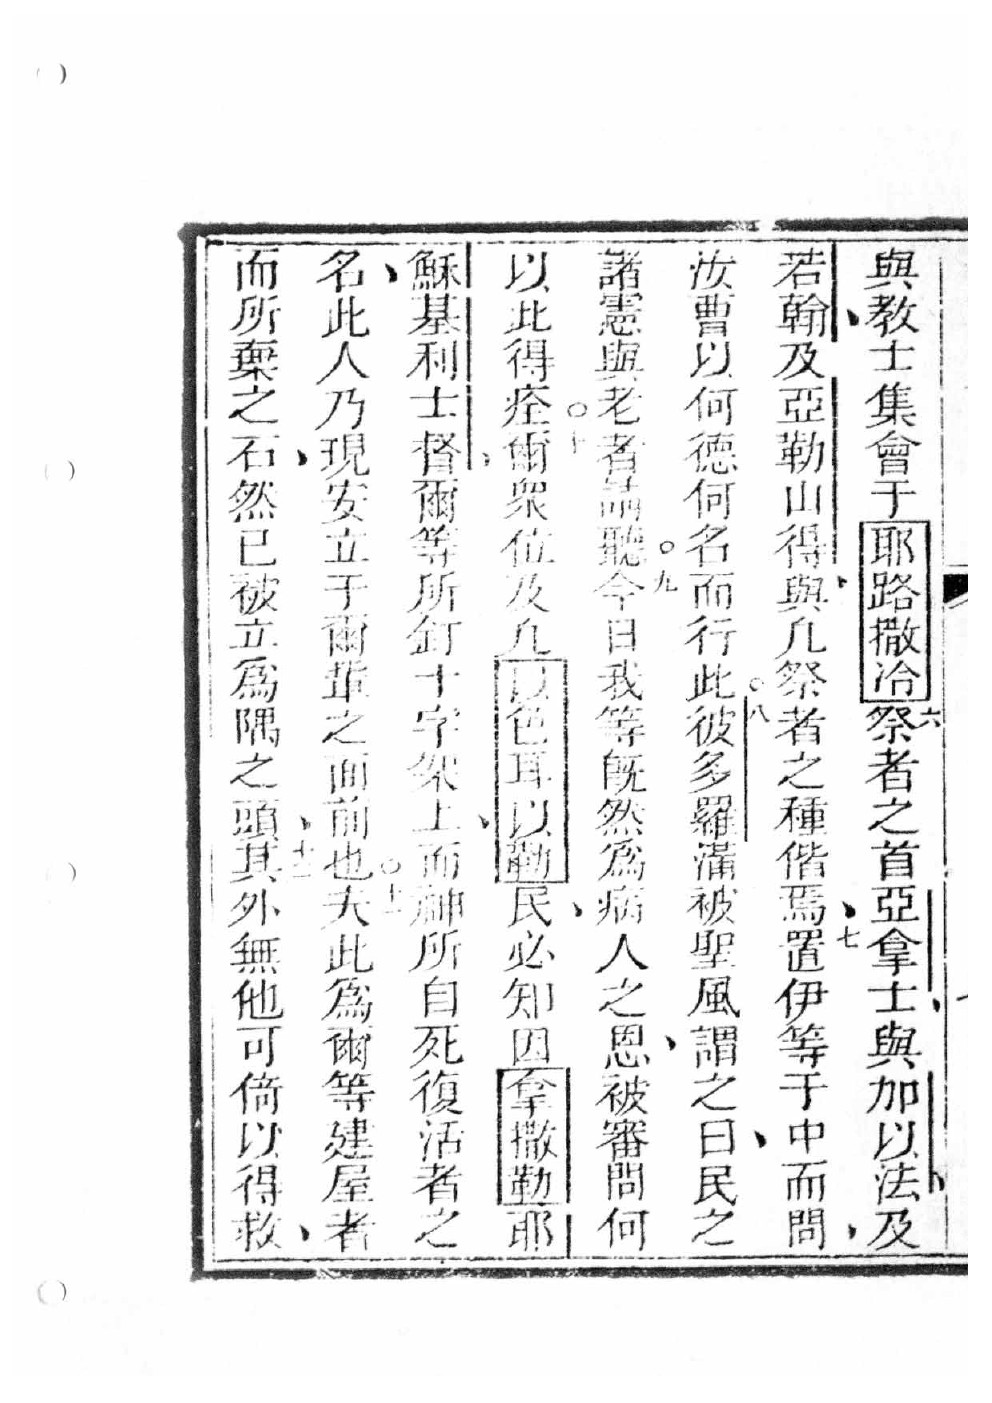 與教士集會于耶路撒冷六祭者之首亞拿士與加以法及
若翰及亞勒山得與凢祭者之種偕焉七置伊等于中而問
汝曹以何德何名而行此○八彼多羅滿被聖風謂之曰民之
諸憲與老者請聽○九今日我等旣然爲病人之恩被審問何
以此得痊○十爾衆位及凢以色耳以勒民必知因拿撒勒耶
穌基利士督爾等所釘十字架上而神所自死復活者之
名此人乃現安立于爾輩之面前也○十一夫此爲爾等建屋者
而所棄之石然已被立爲隅之頭十二其外無他可倚以得救